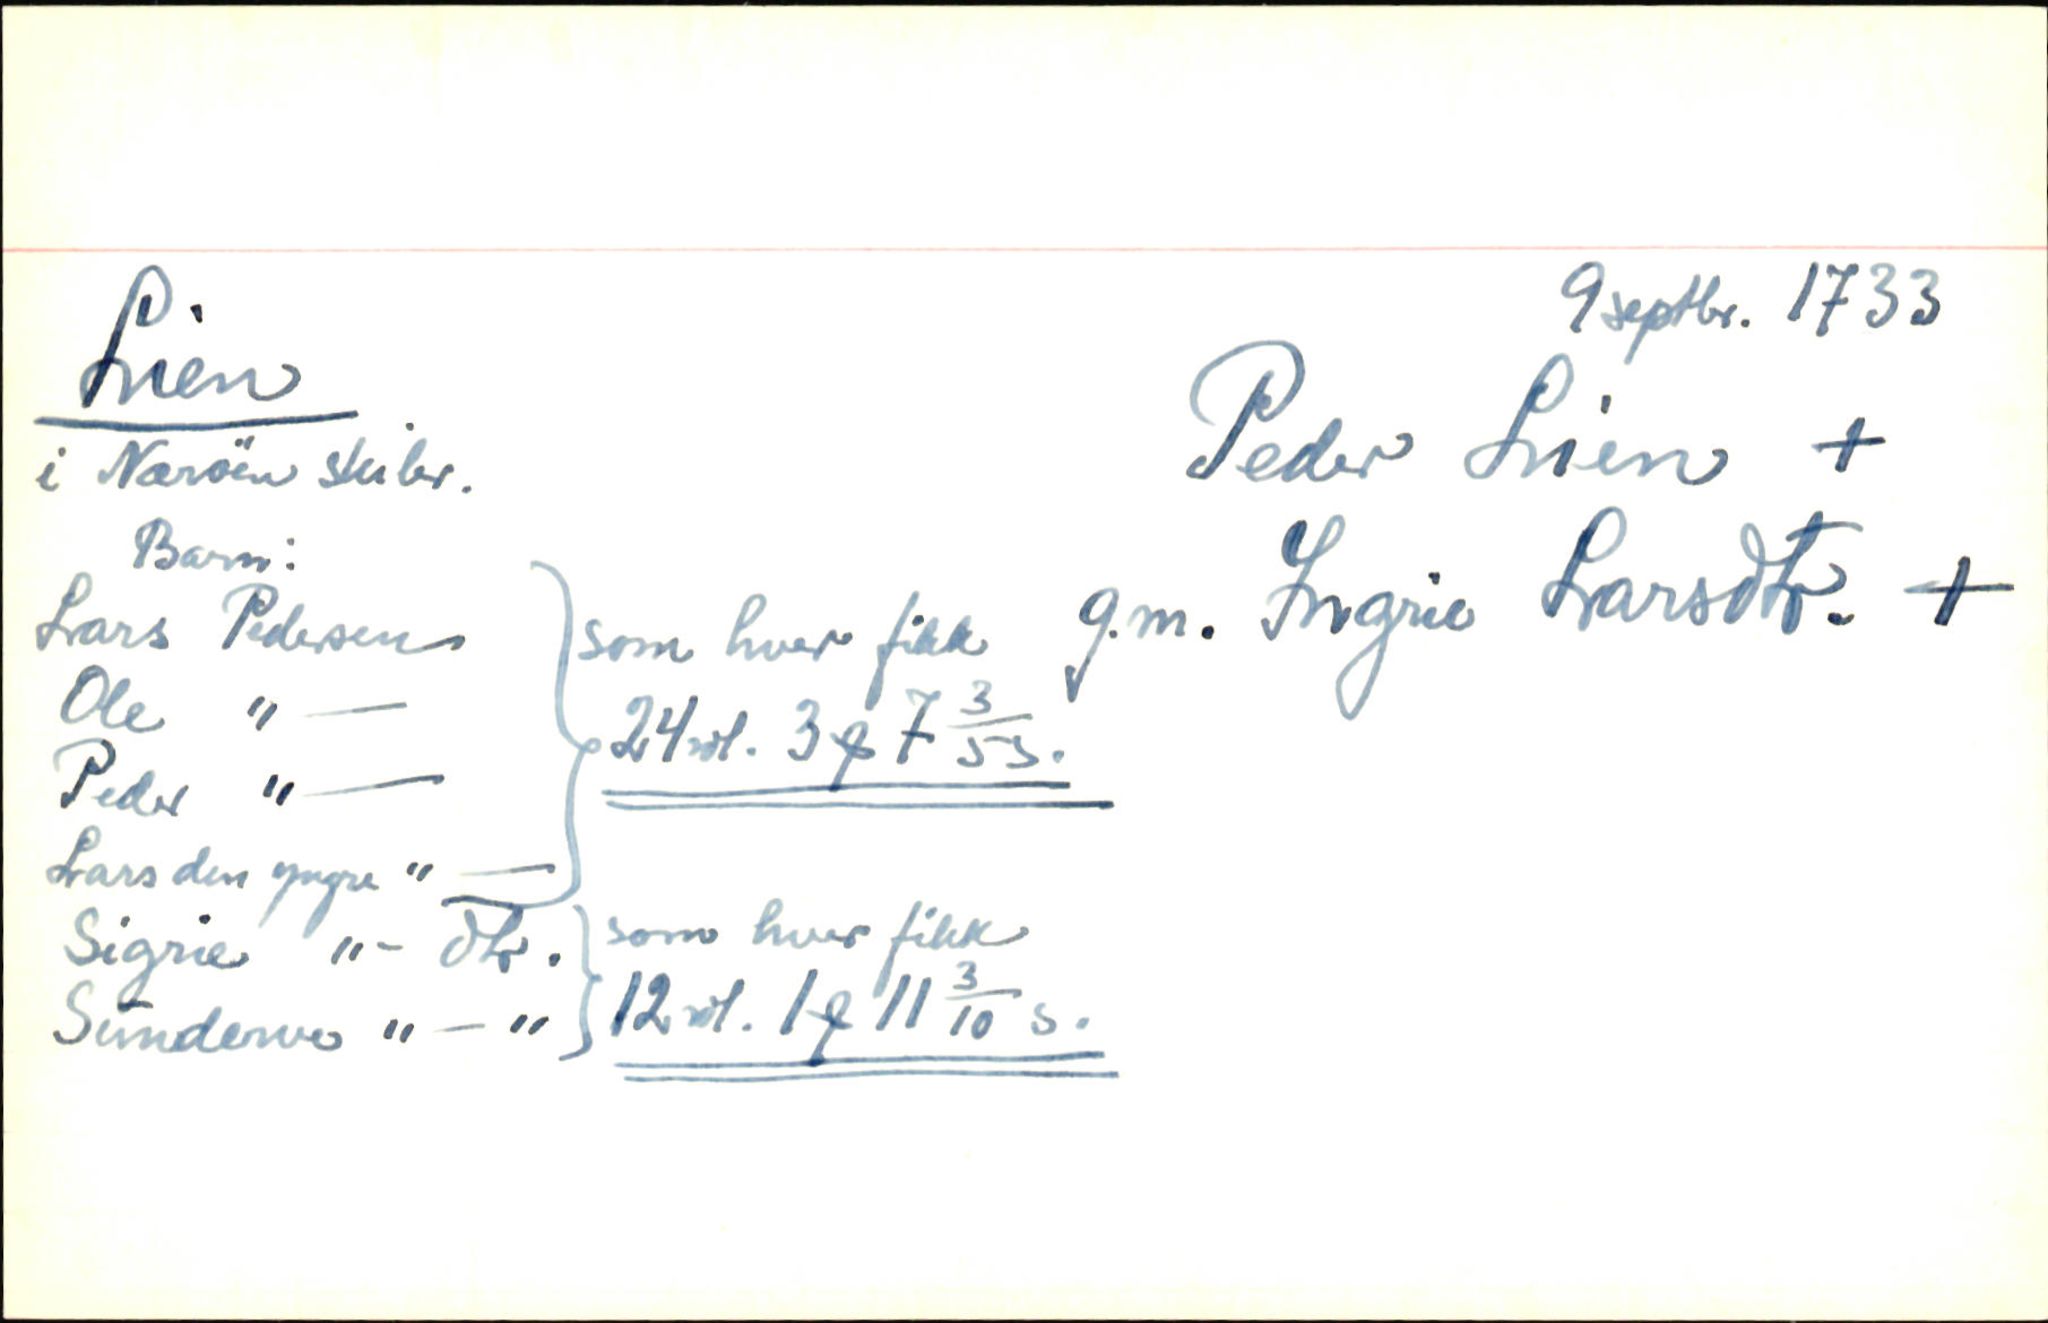 9 septbr. 1733
Lien
Peder Lien +
i Næröen skibr.
g.m. Ingrie Larsdtr. +
Barn:
Lars Pedersen
Ole " —
Peder " —
Lars den yngre " —
som hver fikk
24 rdl. 3 ꝗ 7 3/5 s.
Sigrie " - dtr.
" — "
som hver fikk
12 rdl. 1 ꝗ 11 3/10 s.